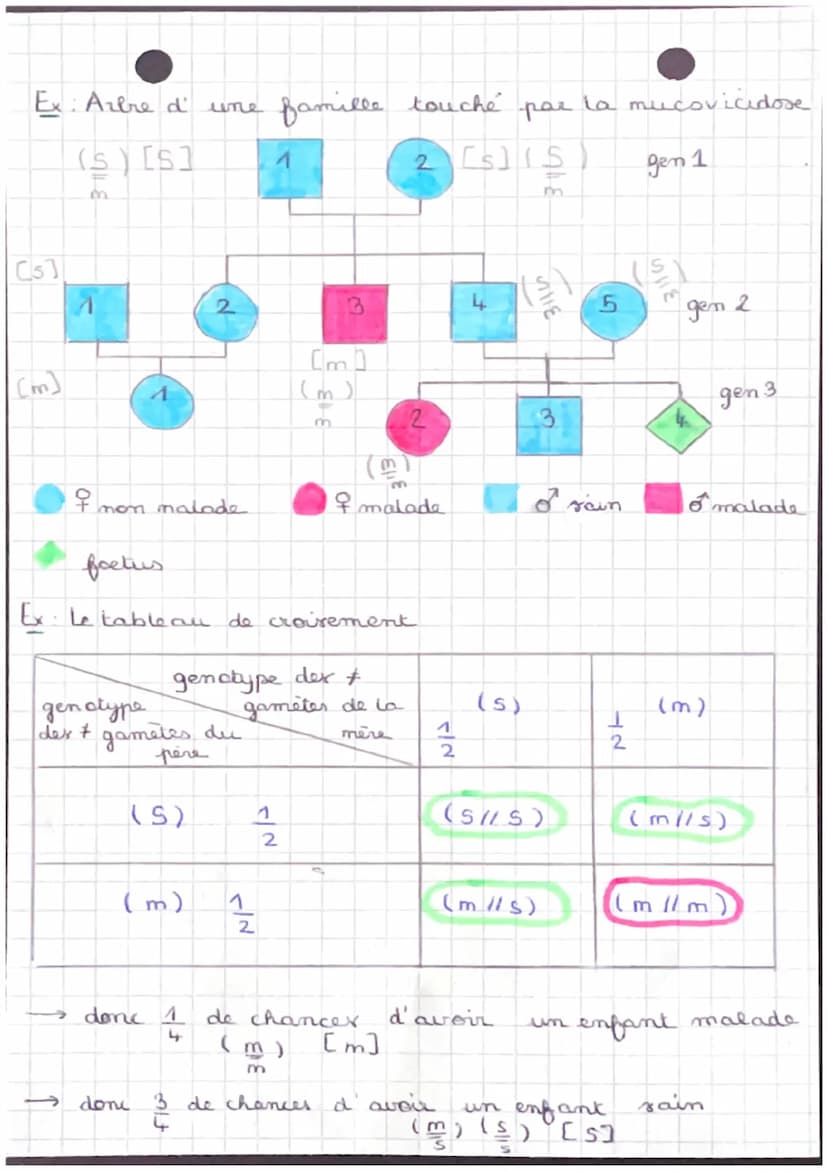 Ex : Arbre d'une famille touché par la mucovicidose
(S//m) [S] 1 2 [S] (S//m) gen 1
[S] 1 2 3 4 (S//m) 5 (S//m) gen 2
[m] 1 [m] (m//m) 2 3 4 gen 3
(m//m)
♀ non malade ♀ malade ♂ sain ♂ malade
foetus
Ex : Le tableau de croisement
genotype des ≠ gamètes de la mère
genotype des ≠ gamètes du père
(S) 1/2 (m) 1/2
(S) 1/2 (S//S) (m//S)
(m) 1/2 (m//S) (m//m)
→ donc 1/4 de chances d'avoir un enfant malade
(m//m) [m]
→ donc 3/4 de chances d'avoir un enfant sain
(m//s) (s//s) [S]